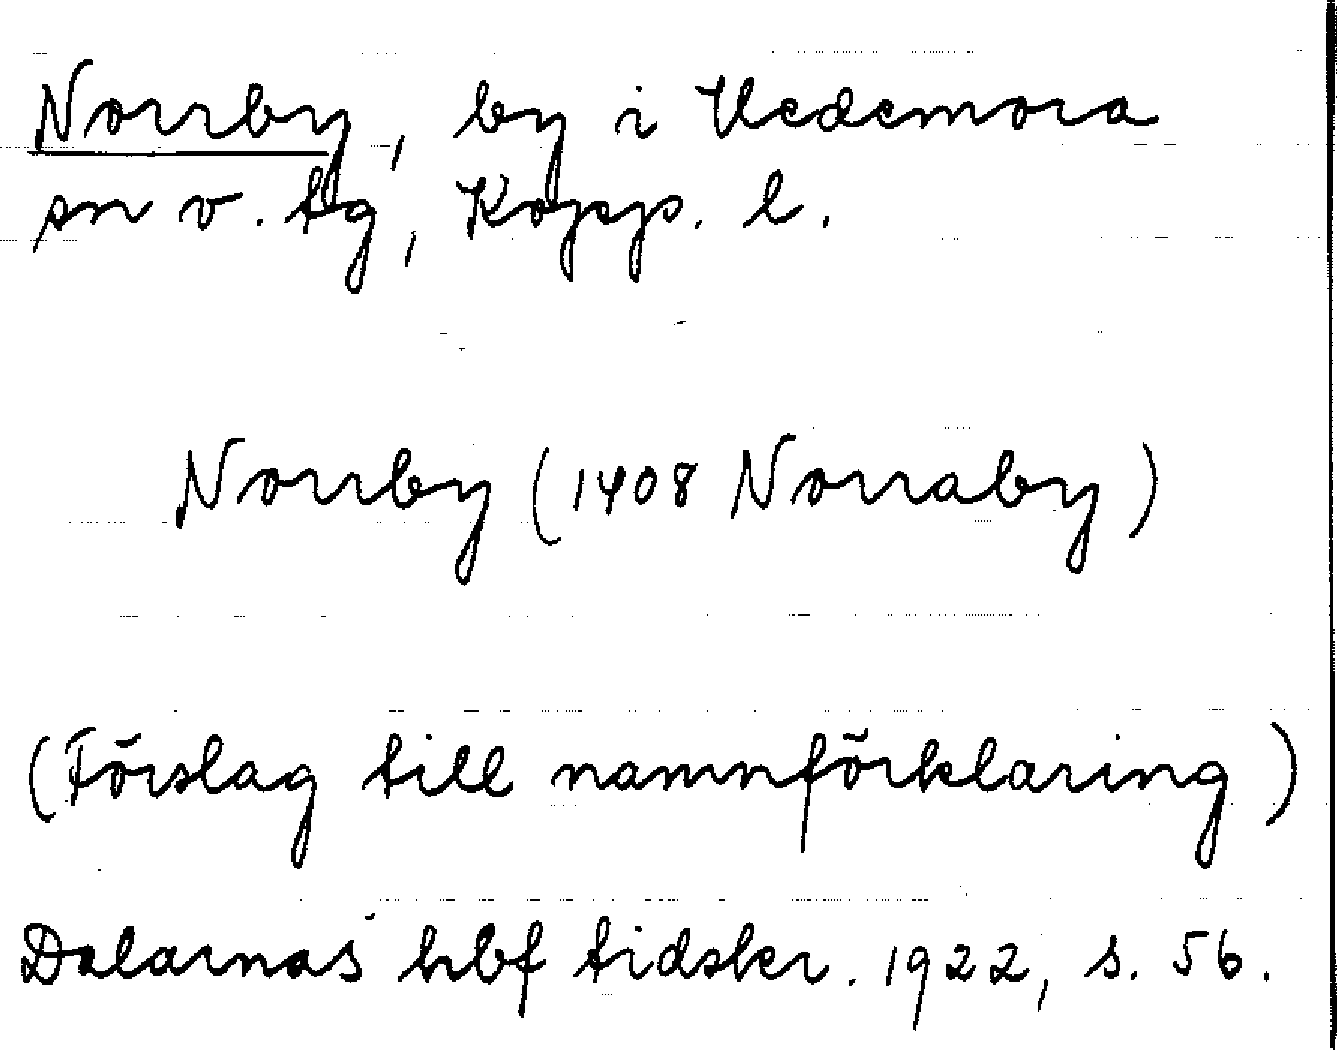 Norrby, by i Hedemora
sn v. tg, Kopp. l.
Norrby (1408 Norraby)
(Förslag till namnförklaring)
Dalarnas hbf tidskr. 1922, s. 56.